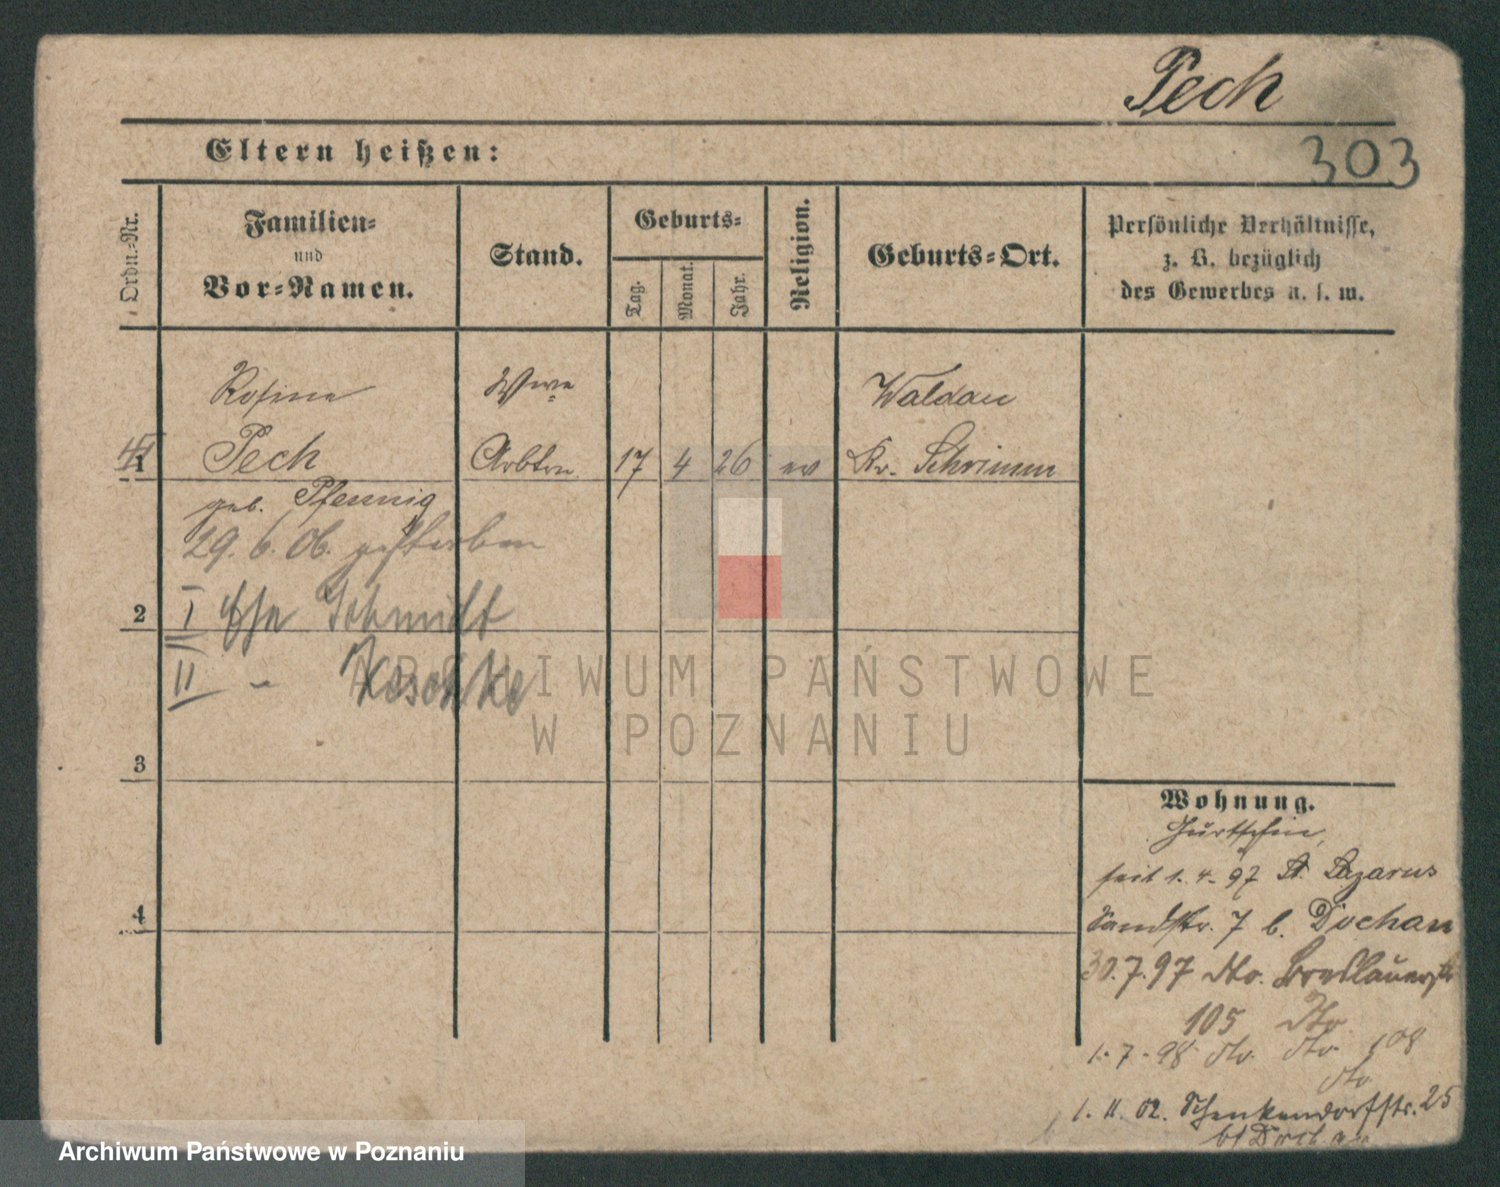 Pech
303
Eltern heißen:
Ordn.-Nr.
Familien-
und
Vor-Namen.
Stand.
Geburts-
Tag.
Monat.
Jahr.
Religion.
Geburts-Ort.
Persönliche Verhältnisse,
z. B. bezüglich
des Gewerbes u. s. w.
Rosine Wwe Waldau
1 Pech Arbtrn 17 4 26 ev Kr. Schrimm
geb. Pfennig
29. 6. 06. gestorben
2 I Ehe Schmidt
II - Koschke
3
4
Wohnung.
Gurtschin,
seit 1. 4. 97 St. Lazarus
Sandstr. 7 b. Dochan
30.7.97 dto. Breslauerstr
105 dto
1.7.98 dto. dto. 108
dto
1. 11. 02. Schenkendorfstr. 25
ARCHIWUM PAŃSTWOWE
W POZNANIU
Archiwum Państwowe w Poznaniu